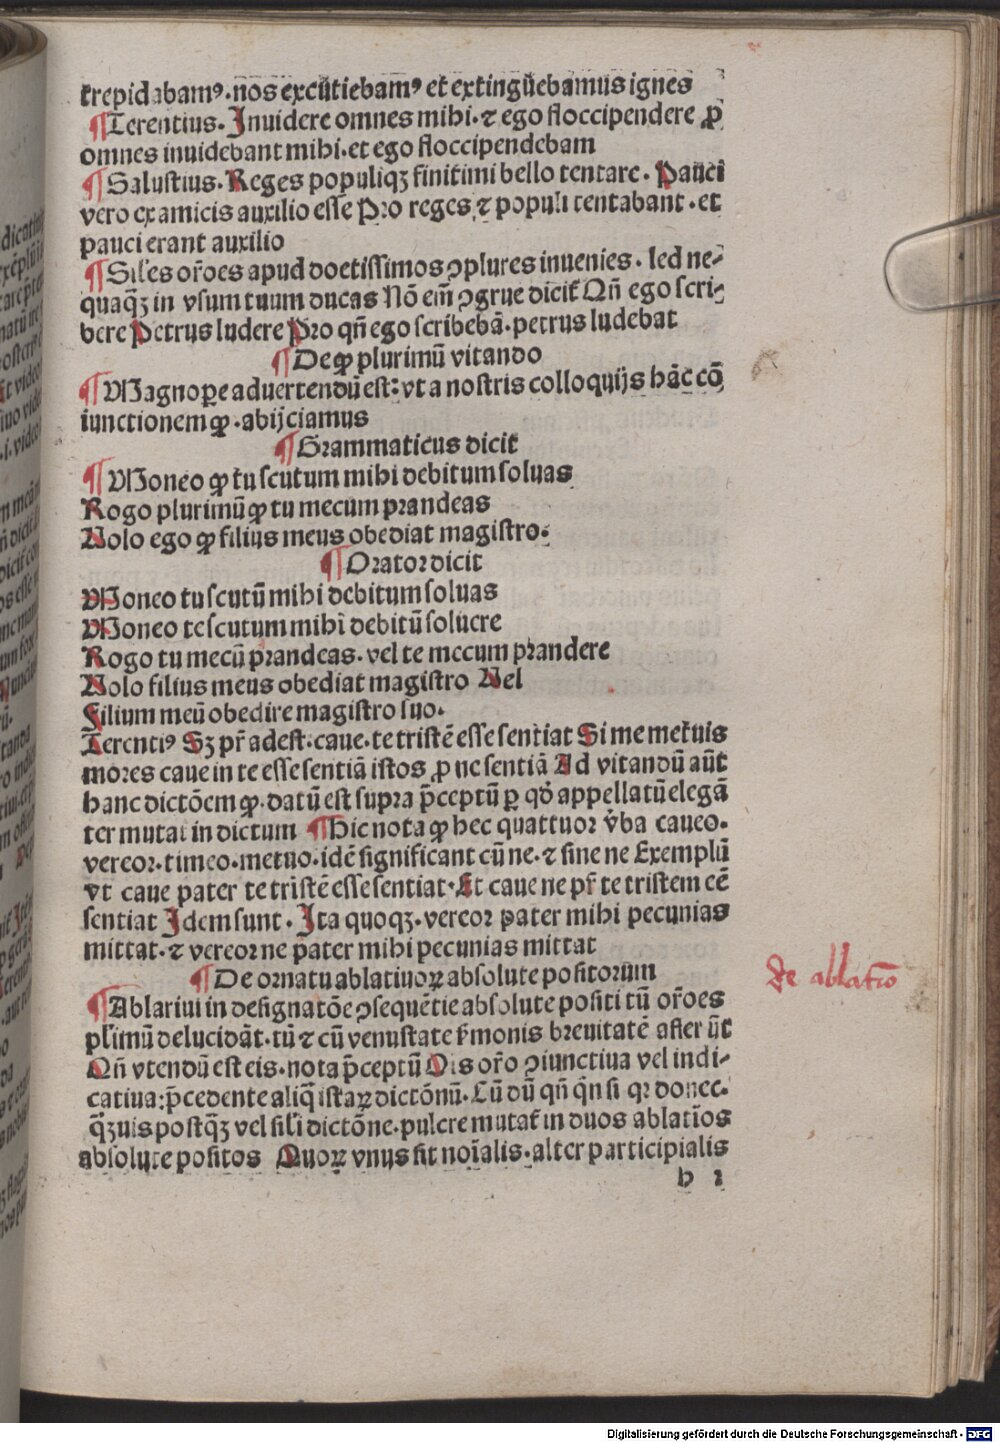 trepidabamꝰ·nos excūtiebamꝰ et extinguebamus ignes
¶Terentius. Inuidere omnes mihi·⁊ ego floccipendere ꝓ
omnes inuidebant mihi·et ego floccipendebam
¶Salustius. Reges populiqꝫ finitimi bello tentare. Pauci
vero ex amicis auxilio esse Pro reges ⁊ populi tentabant·et
pauci erant auxilio
¶Siles or̄oes apud doctissimos ꝯplures inuenies. sed ne-
quaqꝫ in vsum tuum ducas Nō em̄ ꝯgrue dicit̄ Qn̄ ego scri-
bere Petrus ludere Pro qn̄ ego scribebā·petrus ludebat
¶De ꝙ plurimū vitando
¶Magnoꝑe aduertendū est: vt a nostris colloquijs hāc cō
iunctionem ꝙ·abijciamus
¶Grammaticus dicit
¶Moneo ꝙ tu scutum mihi debitum soluas
Rogo plurimū ꝙ tu mecum prandeas
Volo ego ꝙ filius meus obediat magistro.
¶Orator dicit
Moneo tu scutū mihi debitum soluas
Moneo te scutum mihi debitū soluere
Rogo tu mecū prandeas·vel te mecum prandere
Volo filius meus obediat magistro Vel
Filium meū obedire magistro suo.
Terentiꝰ Sꝫ pr̄ adest: caue·te tristē esse sentiat Si me metuis
mores caue in te esse sentiā istos ꝓ ne sentiā Ad vitandū aūt
hanc dictōem ꝙ·datū est supra p̄ceptū ꝑ qd̄ appellatū elegā
ter mutat in dictum ¶Hic nota ꝙ hec quattuor v̄ba caueo.
vereor·timeo·metuo·idē significant cū ne·⁊ sine ne Exemplū
vt caue pater te tristē esse sentiat·Et caue ne pr̄ te tristem eē
sentiat Idem sunt. Ita quoqꝫ·vereor pater mihi pecunias
mittat·⁊ vereor ne pater mihi pecunias mittat
¶De ornatu ablatiuoꝝ absolute positorum
¶Ablatiui in designatōe ꝯsequētie absolute positi tū or̄oes
pl̄imū delucidāt·tū ⁊ cū venustate s̄monis breuitatē affer ūt
Qn̄ vtendū est eis·nota p̄ceptū Ois or̄o ꝯiunctiua vel indi-
catiua: p̄cedente aliq̄ istaꝝ dictōnū·Cū dū qn̄ qn̄ si qꝛ donec.
q̄ꝫuis postq̄ꝫ vel sil̄i dictōne·pulcre mutat̄ in duos ablatiōs
absolute positos Quoꝝ vnus sit noīalis·alter participialis
b 1
de ablatiō
Digitalisierung gefördert durch die Deutsche Forschungsgemeinschaft - DFG